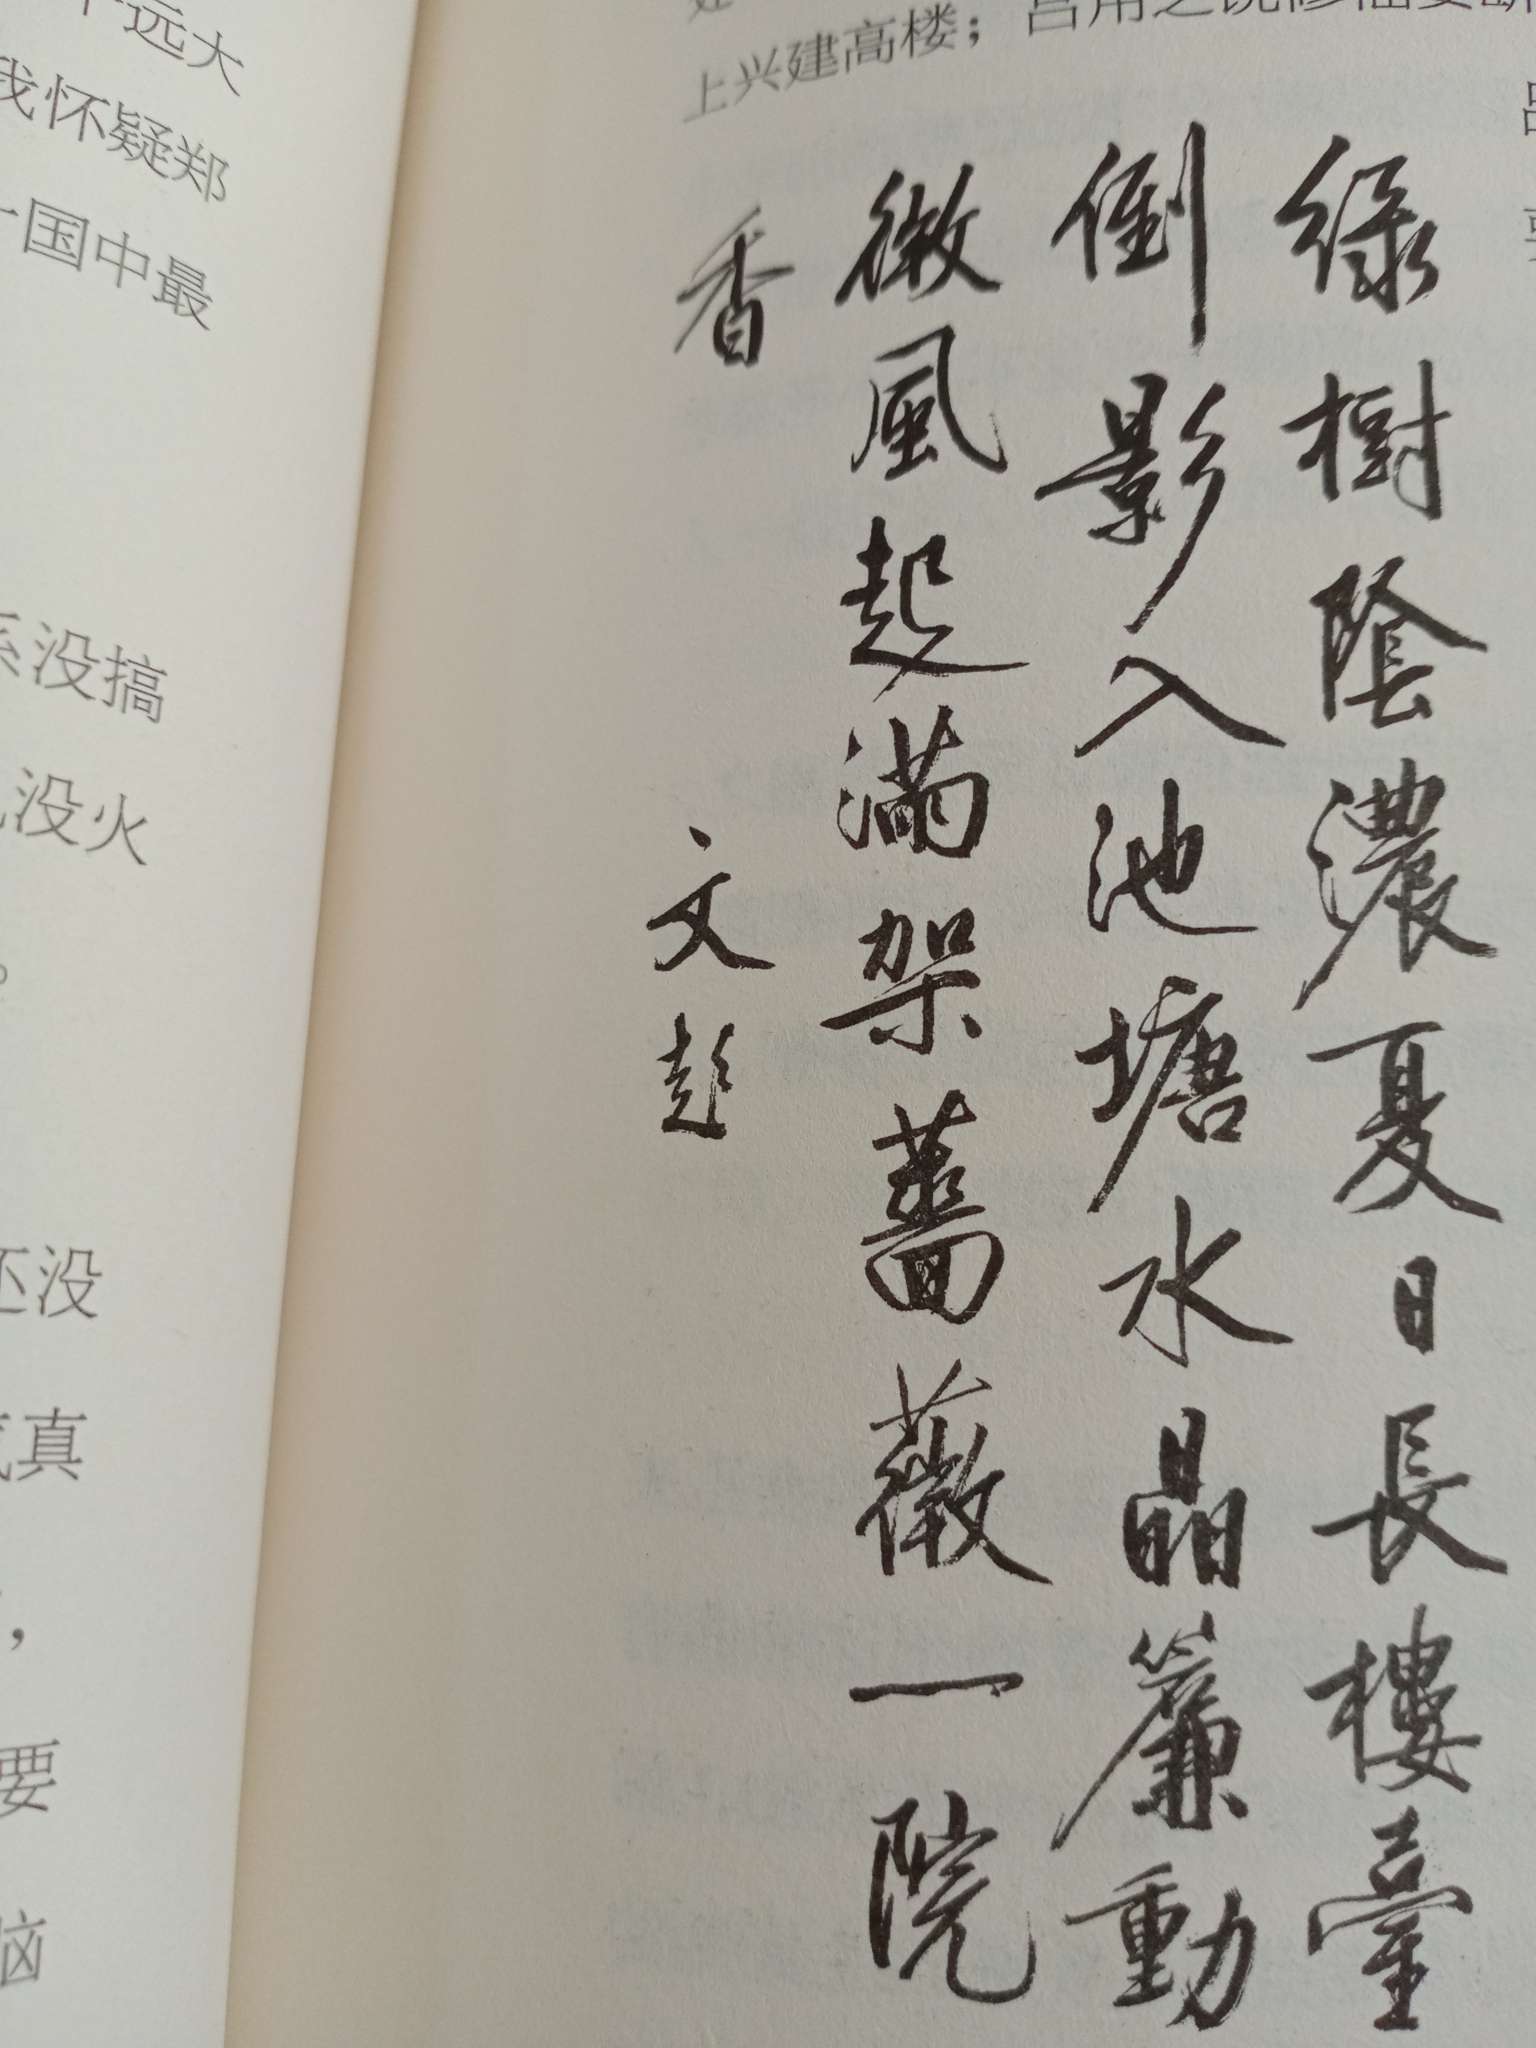 远大
我怀疑郑
一国中最
系没搞
没火
。
还没
真
，
要
恼
上兴建高楼；吕用之说修仙要
綠樹陰濃夏日長樓臺
倒影入池塘水晶簾動
微風起滿架薔薇一院
香
文彭